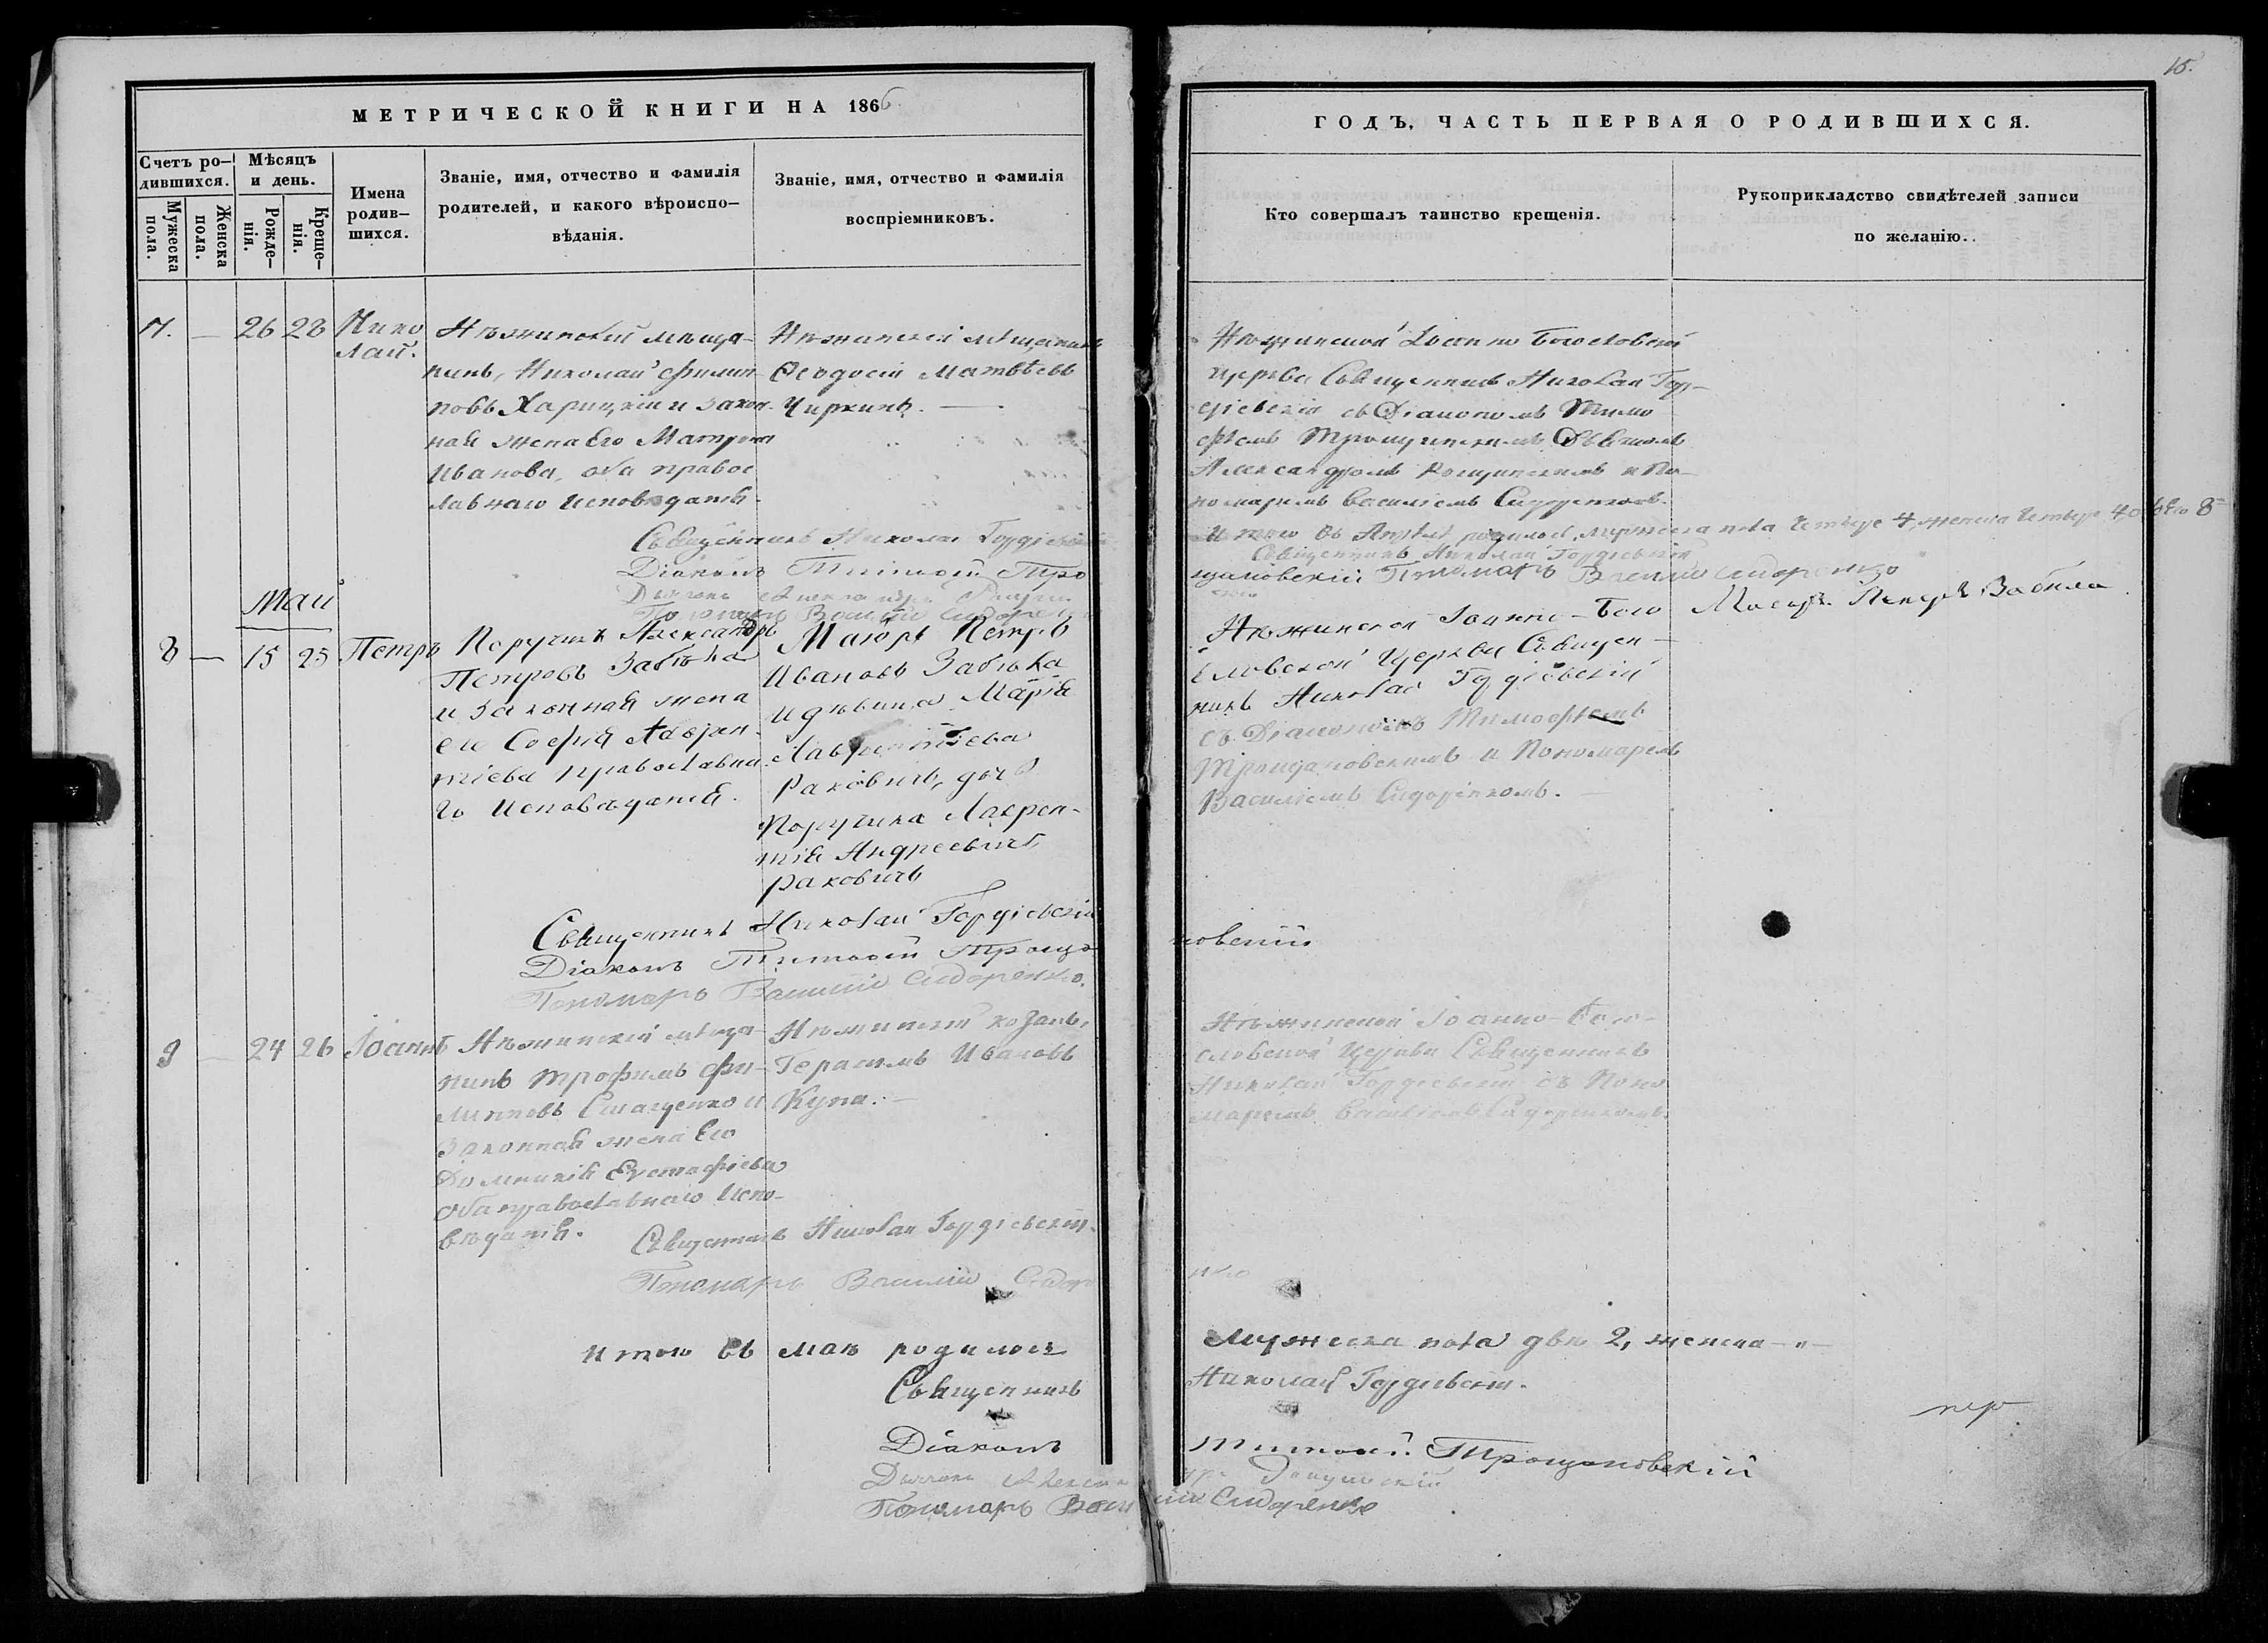 15.
МЕТРИЧЕСКОЙ КНИГИ НА 1866
Счетъ ро-
дившихся.
Мужеска
пола.
Женска
пола.
Мѣсяцъ
и день.
Рожде-
нія.
Креще-
нія.
Имена
родив-
шихся.
Званіе, имя, отчество и фамилія
родителей, и какого вѣроиспо-
вѣданія.
Званіе, имя, отчество и фамилія
воспріемниковъ.
ГОДЪ, ЧАСТЬ ПЕРВАЯ О РОДИВШИХСЯ.
Кто совершалъ таинство крещенія.
Рукоприкладство свидѣтелей записи
по желанію.
— 26 28
Нико
лай.
Нѣжинскій мѣща-
нинъ, Николай Филип
повъ Харицкій и закон
ная жена Его Матрона
Иванова, оба правос
лавнаго исповѣданія.
Нѣжинскій мѣщанинъ
Ѳеодосій Матвѣевъ
Чиркинъ. —
Нѣжинской Іоанно Богословской
церкви Священникъ Николай Гор-
діевскій съ Діакономъ Тимо
феемъ
Александромъ и По-
номаремъ Василіемъ Сидоренкомъ.
Священникъ Николай Гордіевскій
Діаконъ Тимофей Тро
щановскій Пономарь Василій Сидоренко
Итого въ Апрѣлѣ родилось мужеска пола четыре 4, женска четыре 4 обоего 8
Священникъ Николай Гордіевскій
Пономарь Василій Сидоренко
Май
8 — 15 25 Петръ
Поручикъ Александръ
Петровъ Забѣла
и законная жена
его Софія Лаврен-
тіева православна
го исповѣданія.
Маіоръ Петръ
Ивановъ Забѣла
и дѣвица Марія
Лаврентіева
Раковичъ, дочь
Поручика Лаврен-
тія Андреевича
Раковичъ
Нѣжинской Іоанно-Бого
словской Церкви Священ-
никъ Николай Гордіевскій
съ Діакономъ Тимофеемъ
Трощановскимъ и Пономаремъ
Василіемъ Сидоренкомъ. —
Маіоръ Петръ Забѣла
Священникъ Николай Гордіевскій
Діаконъ Тимофей Трощановскій
Пономарь Василій Сидоренко.
9 — 24 26 Іоаннъ
Нѣжинскій мѣща-
нинъ Трофимъ Фи-
липповъ и
Законная жена Его
Домникія Евстафіева
оба православнаго испо-
вѣданія.
Нѣжинскій козакъ,
Герасимъ Ивановъ
Купа. —
Нѣжинской Іоанно-Бого-
словской Церкви Священникъ
Николай Гордіевскій съ Поно
маремъ Василіемъ Сидоренкомъ.
Священникъ Николай Гордіевскій.
Пономарь Василій Сидоренко
Итого въ маѣ родилось мужеска пола двѣ 2, женска — " —
Священникъ Николай Гордіевскій.
Діаконъ Тимофей Трощановскій
Пономарь Василій Сидоренко